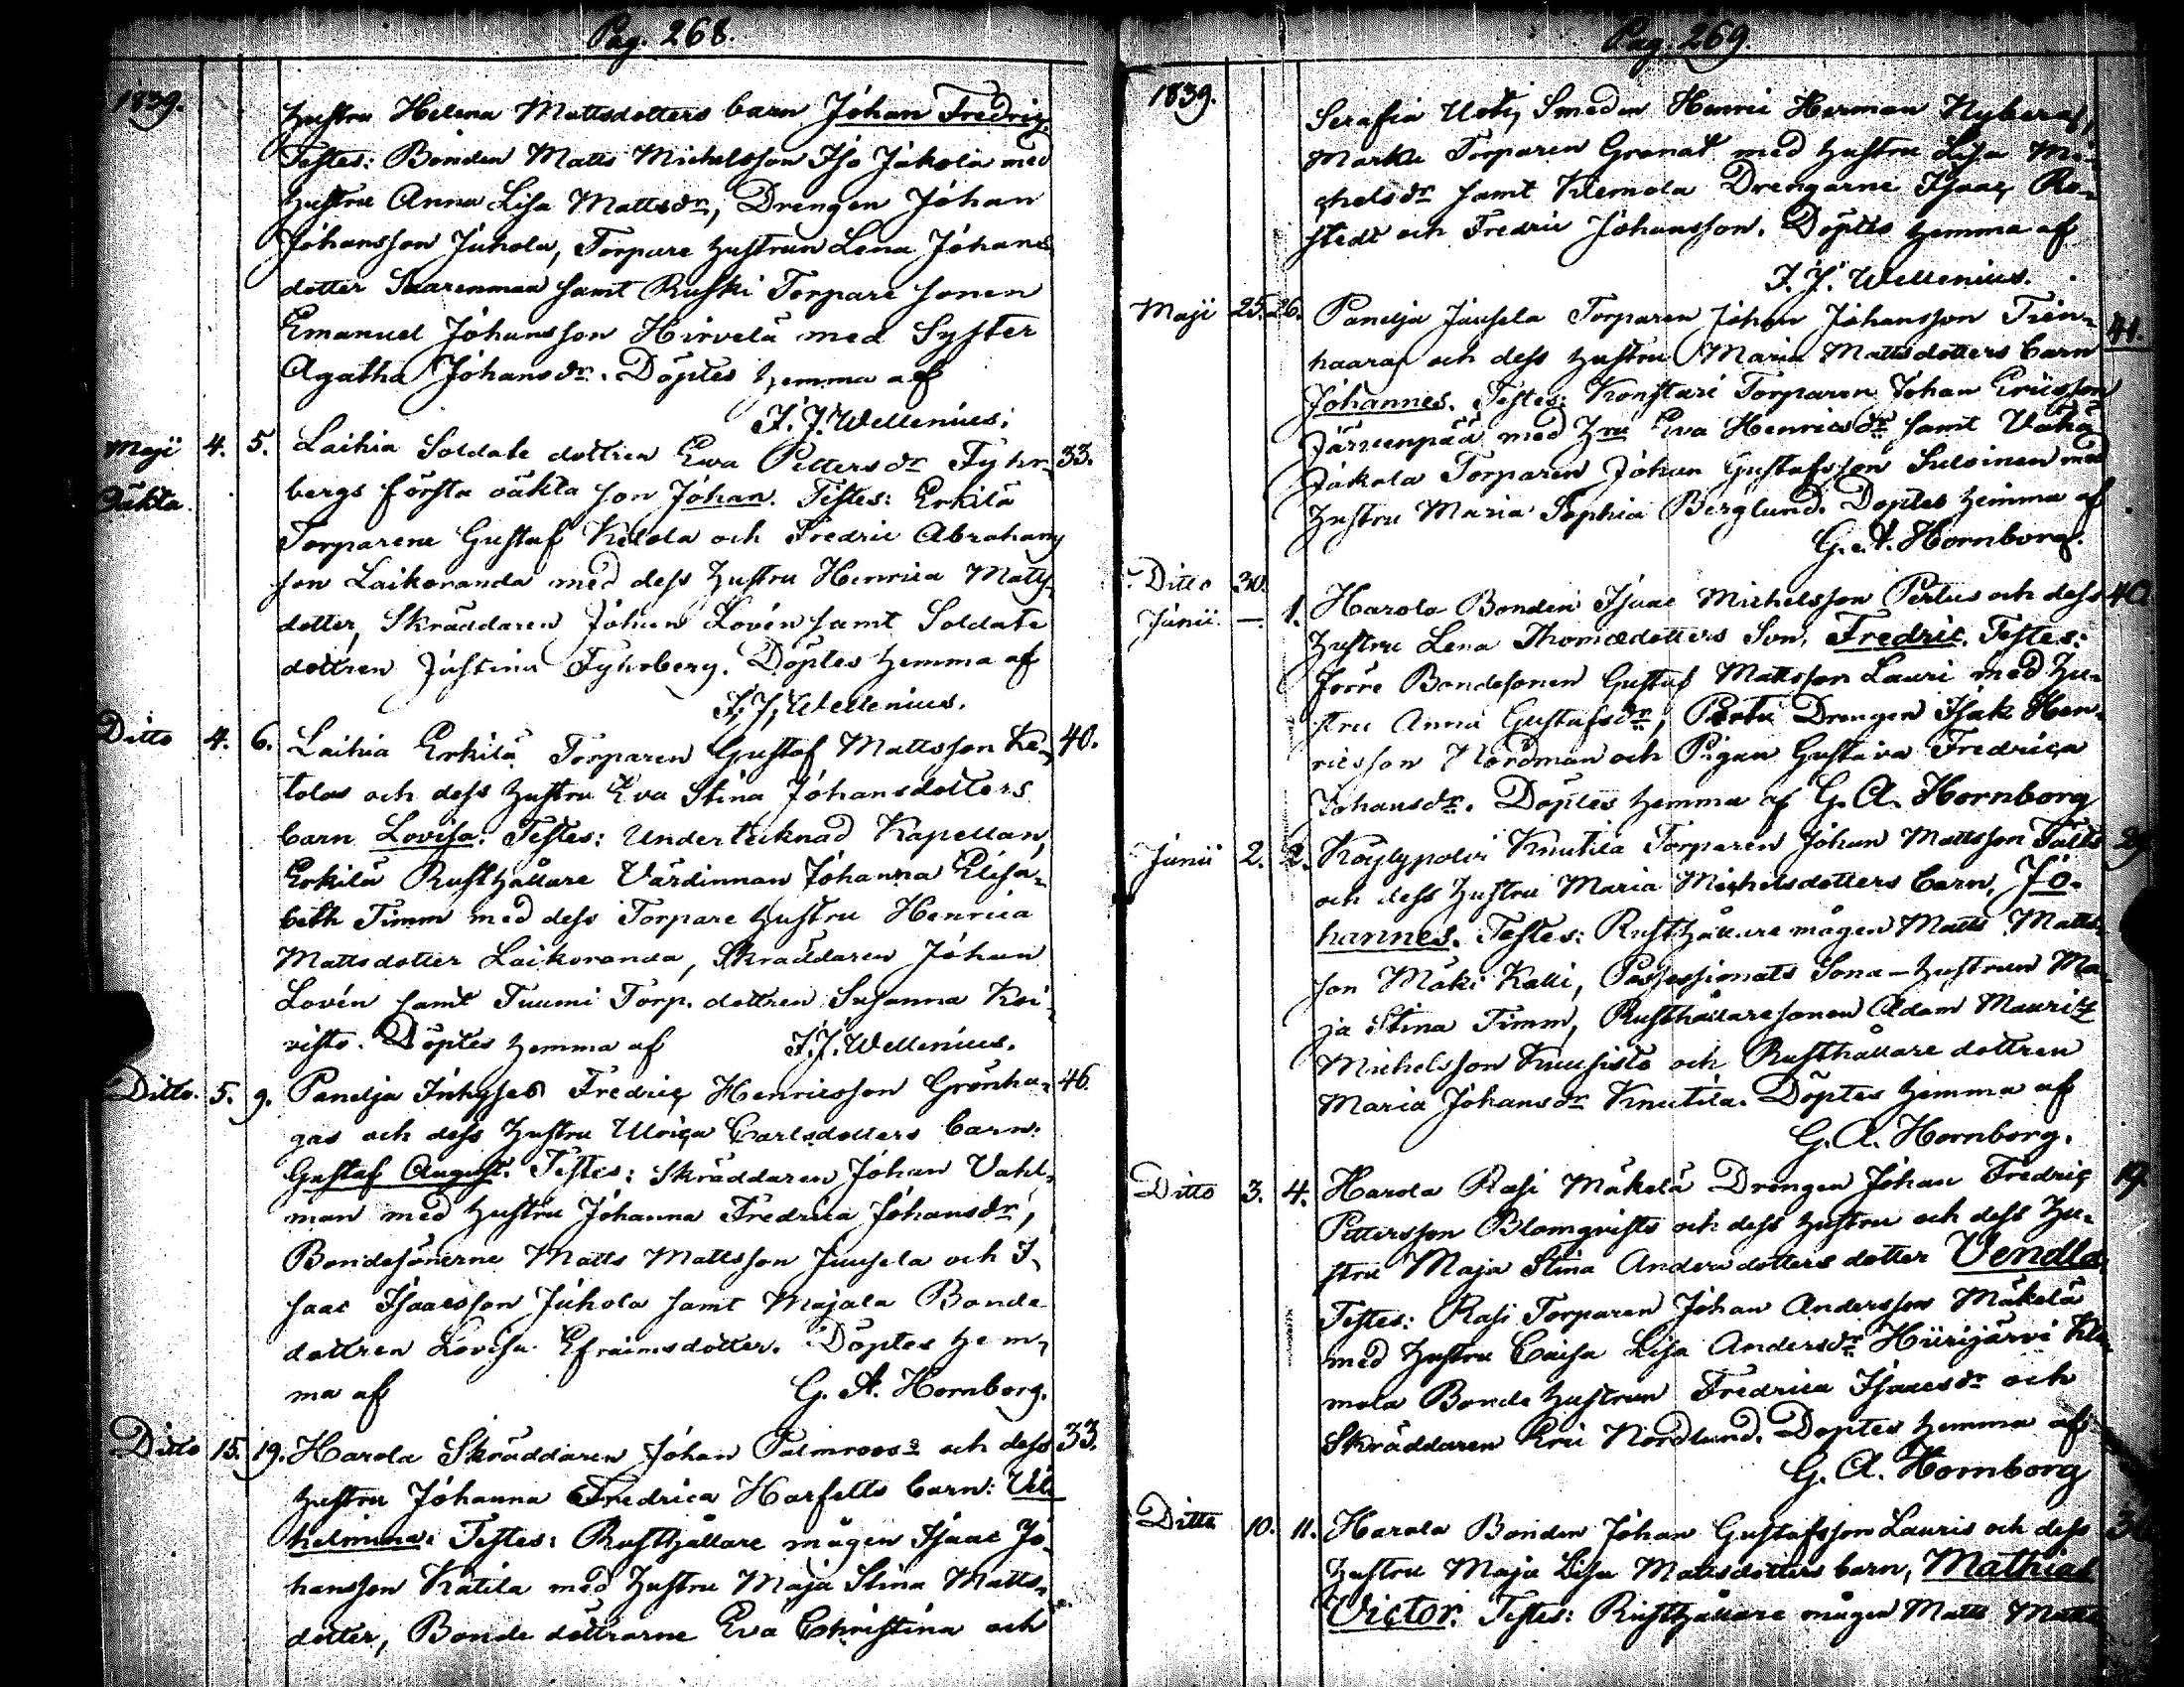 Pag. 268.
1839.
Hustru Helena Mattsdotters barn Johan Fredric.
Testes: Bonden Matts Michelsson Iso Jukola med
Hustru Anna Lisa Mattsdr, Drengen Johan
Johansson Jukola, Torpare hustrun Lena Johans
dotter Saarenmaa samt Ruski Torpare sonen
Emanuel Johansson Hirvelä med Syster
Agatha Johansdr. Döptes hemma af
F. J. Wellenius.
Maji 4. 5. Laihia Soldate dottren Eva Pettersdr Fyhr- 33.
Oäkta bergs första oäkta son Johan. Testes: Erkilä
Torparene Gustaf Ketola och Fredric Abrahams
son Laikoranda med dess hustru Henrica Matts
dotter, Skräddaren Johan Lovén samt Soldate
dottren Justina Fyhrberg. Döptes hemma af
F. J. Wellenius.
Ditto 4. 6. Laihia Erkilä Torparen Gustaf Mattsson Ke- 40.
tolas och dess hustru Eva Stina Johansdotters
barn Lovisa. Testes: Undertecknad Kapellan,
Erkilä Rusthållare Värdinnan Johanna Elisa-
beth Timm med dess Torpare hustru Henrica
Mattsdotter Laikoranda, Skräddaren Johan
Lovén samt Tuumi Torp. dottren Susanna Koi-
visto. Döptes hemma af F. J. Wellenius.
Ditto. 5. 9. Panelja Inhyses Fredric Henricsson Grönha- 46.
gas och dess hustru Ulrica Carlsdotters barn:
Gustaf August. Testes: Skräddaren Johan Vahl-
man med hustru Johanna Fredrica Johansdr,
Bondesönerne Matts Mattsson Juusela och I-
saac Isaacsson Jukola samt Majala Bonde
dottren Lovisa Efraimsdotter. Döptes hem-
ma af G. A. Hornborg.
Ditto 15. 19. Harola Skräddaren Johan Palmroos's och dess 33.
hustru Johanna Fredrica Harfelts barn: Vil
helmina. Testes: Rusthållare mågen Isaac Jo-
hansson Katila med hustru Maja Stina Matts-
dotter, Bonde döttrarne Eva Christina och
Pag. 269.
1839.
Serafia Uoti, Smeden Henric Herman Nyberg,
Marku Torparen Granat med hustru Lisa Mi-
chelsdr samt Klemola Drengarne Isaac Ro-
stedt och Fredric Johansson. Döptes hemma af
F. J. Wellenius.
Maji 25. 26. Panelja Juusela Torparen Johan Johansson Tien- 41.
haaras och dess hustru Maria Mattsdotters barn
Johannes. Testes: Konstari Torparen Johan Ericsson
Järvenpää med Hru Eva Henricsdr samt Vähä
Jukola Torparen Johan Gustafsson Suloinen med
hustru Maria Sophia Berglund. Döptes hemma af
G. A. Hornborg.
Ditto 30.
Junii. — 1. Harola Bonden Isaac Michelsson Pertus och dess 40
hustru Lena Thomædotters Son, Fredric. Testes:
förre Bondesonen Gustaf Mattsson Lauri med hu-
stru Anna Gustafsdr, Pertu Drengen Isak Hen-
ricsson Nordman och Pigan Gustava Fredrica
Johansdr. Döptes hemma af G. A. Hornborg
Junii 2. 2. Köylypolvi Knutila Torparen Johan Mattsson 29
och dess hustru Maria Michelsdotters barn, Jo-
hannes. Testes: Rusthållare mågen Matts Matts-
son Mäki Kalli, Possessionats Sona-hustrun Ma-
ja Stina Timm, Rusthållaresonen Adam Mauritz
Michelsson Kuusisto och Rusthållare dottren
Maria Johansdr Knutila. Döptes hemma af
G. A. Hornborg.
Ditto 3. 4. Harola Rasi Mäkelä Drengen Johan Fredric 19.
Pettersson Blomqvists och dess hustru och dess Hu-
stru Maja Stina Andersdotters dotter Vendla
Testes: Rasi Torparen Johan Andersson Mäkelä
med hustru Caisa Lisa Andersdr Hiirijärvi Kle
mola Bonde hustrun Fredrica Isaacsdr och
Skräddaren Eric Nordlund. Döptes hemma af
G. A. Hornborg
Ditto 10. 11. Harola Bonden Johan Gustafsson Lauris och dess
hustru Maja Lisa Mattsdotters barn, Mathias
Victor. Testes: Rusthållare mågen Matts Matts